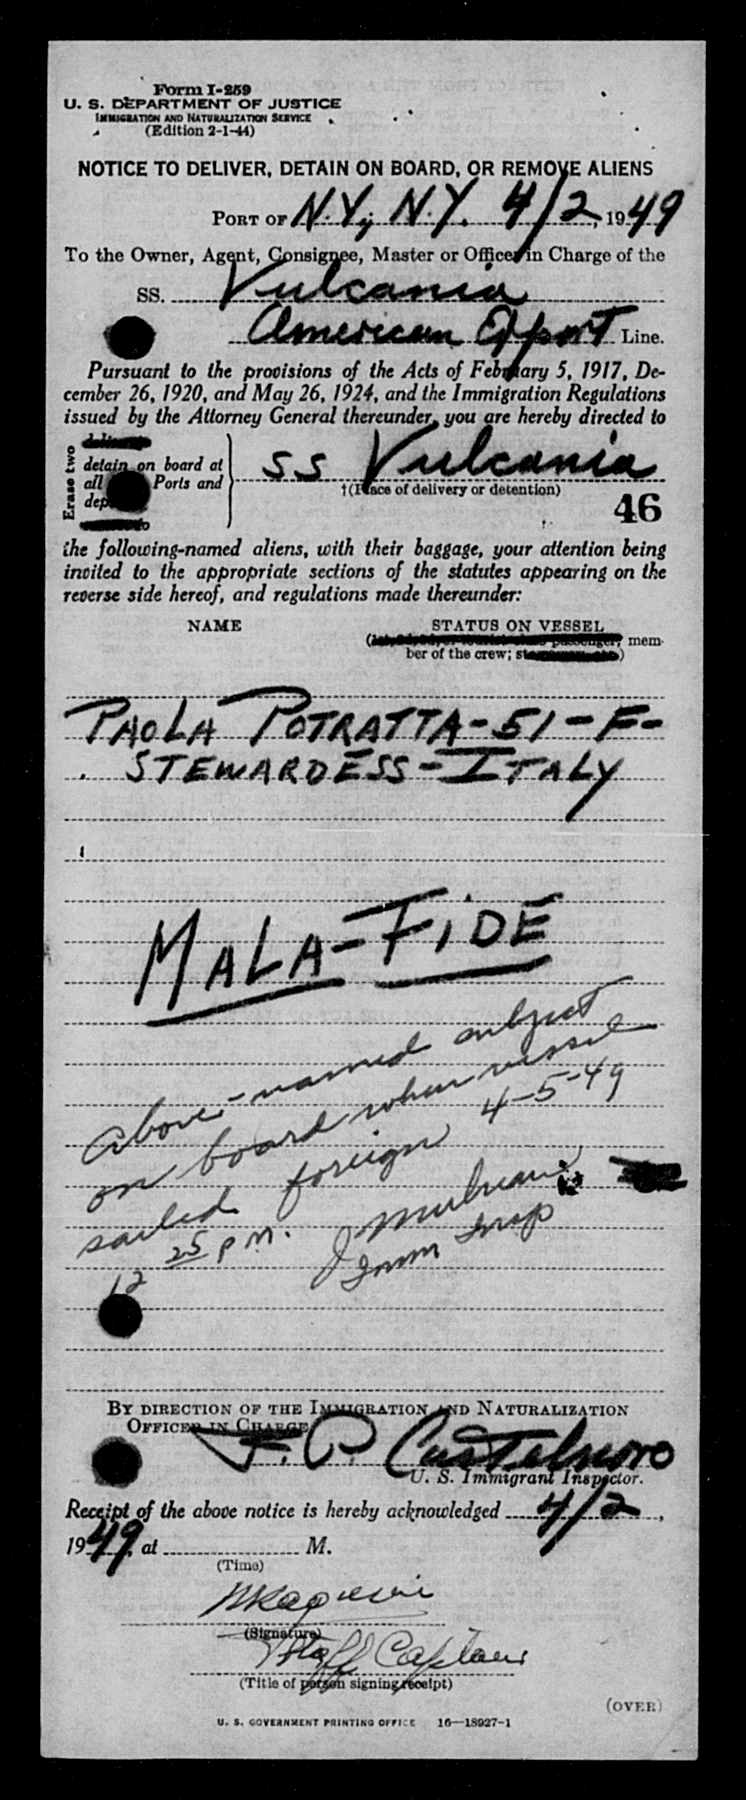 Form I-259
U. S. DEPARTMENT OF JUSTICE
IMMIGRATION AND NATURALIZATION SERVICE
(Edition 2-1-44)
NOTICE TO DELIVER, DETAIN ON BOARD, OR REMOVE ALIENS
PORT OF N.Y., N.Y. 4/2, 1949
To the Owner, Agent, Consignee, Master or Officer in Charge of the
SS. Vulcania
American Export Line.
Pursuant to the provisions of the Acts of February 5, 1917, De-
cember 26, 1920, and May 26, 1924, and the Immigration Regulations
issued by the Attorney General thereunder, you are hereby directed to
Erase two
detain on board at
all Ports and
SS Vulcania
†(Place of delivery or detention)
46
the following-named aliens, with their baggage, your attention being
invited to the appropriate sections of the statutes appearing on the
reverse side hereof, and regulations made thereunder:
NAME STATUS ON VESSEL
mem-
ber of the crew;
PAOLA POTRATTA-51-F-
STEWARDESS-ITALY
MALA-FIDE
above-named subject
on board when vessel
sailed foreign 4-5-49
12 25 P M.
Imm Insp
BY DIRECTION OF THE IMMIGRATION AND NATURALIZATION
OFFICER IN CHARGE
F. P. Castelnoro
U. S. Immigrant Inspector.
Receipt of the above notice is hereby acknowledged 4/2,
1949, at M.
(Time)
(Signature)
Staff Captain
(Title of person signing receipt)
(OVER)
U. S. GOVERNMENT PRINTING OFFICE 16—18927-1